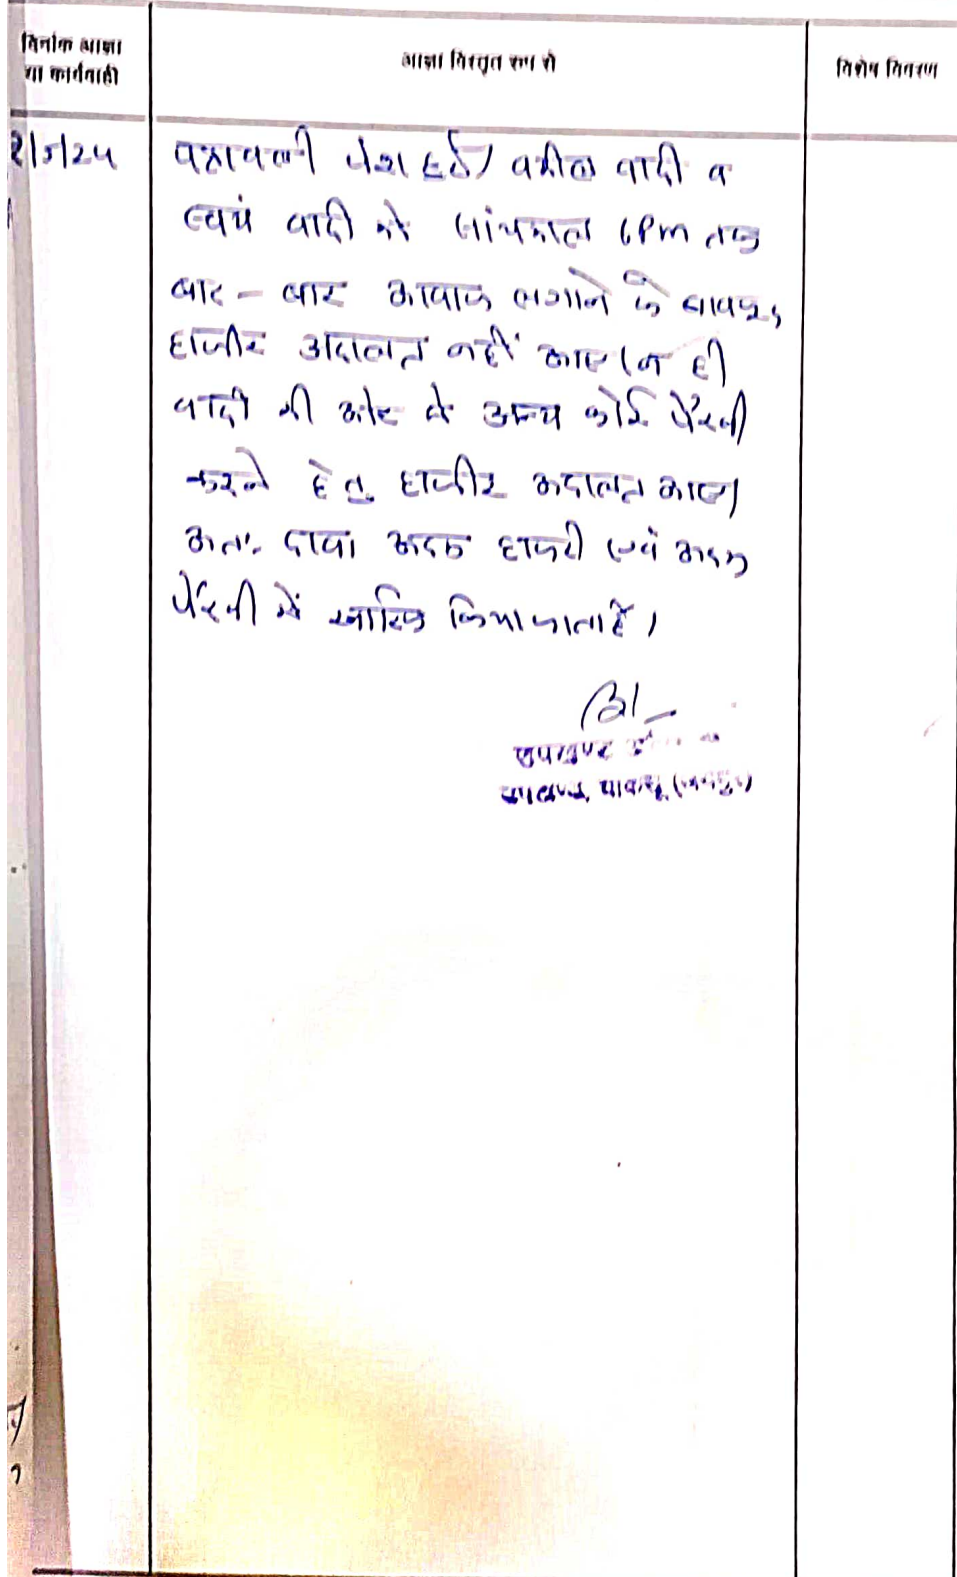 दिनांक आज्ञा
या कार्यवाही
आज्ञा विस्तृत रूप से
विशेष विवरण
2/5/24
पत्रावली पेश हुई। वकील वादी व
स्वयं वादी को सांयकाल 6 PM तक
बार - बार आवाज लगाने के बावजूद
हाजीर अदालत नहीं आए। न ही
वादी की ओर से अन्य कोई पैरवी
करने हेतु हाजीर अदालत आए।
अतः दावा अदम हाजरी एवं अदम
पैरवी में खारिज किया जाता है।
उपखण्ड
उपखण्ड, चाकसू (जयपुर)